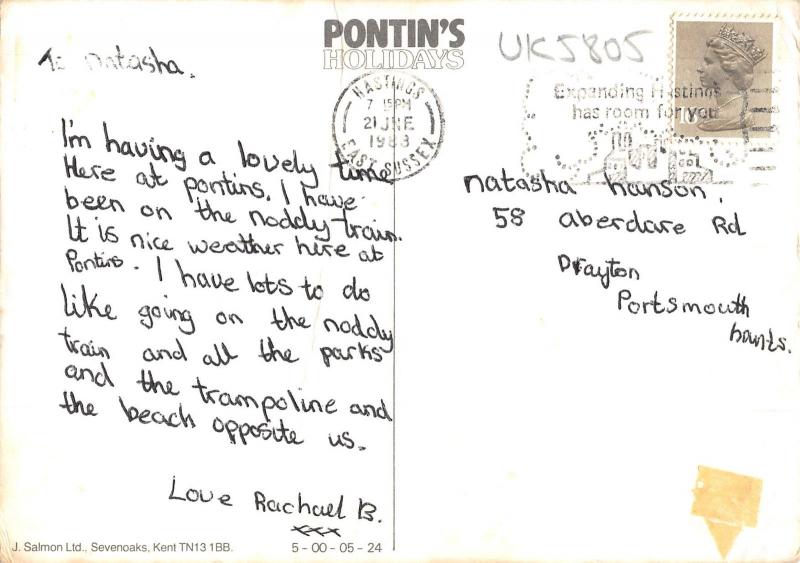 PONTIN'S
HOLIDAYS
UK5805
To Natasha.
HASTINGS
7 15PM
21 JNE
1988
EAST SUSSEX
Expanding Hastings
has room for you
I'm having a lovely time
Here at pontins. I have
been on the noddy train.
It is nice weather here at
Pontins. I have lots to do
like going on the noddy
train and all the parks
and the trampoline and
the beach opposite us.
Love Rachael B.
xxx
natasha hanson,
58 aberdare Rd
Drayton
Portsmouth
hants.
J. Salmon Ltd., Sevenoaks, Kent TN13 1BB.
5-00-05-24